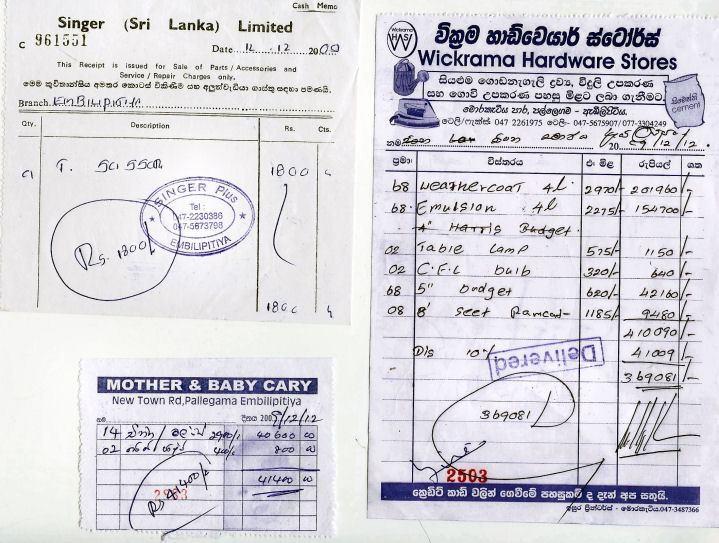 Cash Memo
Singer (Sri Lanka) Limited
C 961551
Date 12.12.2009
This Receipt is issued for Sale of Parts/Accessories and
Service/Repair Charges only.
මෙම කුවිතාන්සිය අමතර කොටස් විකිණීම සහ අලුත්වැඩියා ගාස්තු සඳහා පමණයි.
Branch Embilipitiya
Qty. Description Rs. Cts.
01 1800
SINGER Plus
Tel :
047-2230386
047-5673798
EMBILIPITIYA
Rs. 1800/-
1800
MOTHER & BABY CARY
New Town Rd,Pallegama Embilipitiya
නම දිනය 2009/12/12
14 2900/- 40600 00
02 400/- 800 00
41400 00
Rs 41400/-
2903
Wickrama
HAS
වික්‍රම හාඩ්වෙයාර් ස්ටෝර්ස්
Wickrama Hardware Stores
සියළුම ගොඩනැගිලි ද්‍රව්‍ය, විදුලි උපකරණ
සහ ගොවි උපකරණ පහසු මිළට ලබා ගැනීමට.
මොරකැටිය පාර, පල්ලෙගම - ඇඹිලිපිටිය.
ටෙලි/ෆැක්ස් 047 2261975 ටෙලි:- 047-5675907/ 077-3304249
සිමෙන්ති
cement
නම 2009/12/12.
ප්‍රමාණ විස්තරය එ: මිළ රුපියල් ශත
68 Weathercoat 4L 2970/- 201960/-
68 Emulsion 4L 2275/- 154700/-
4" Harris Budget.
02 Table Lamp 575/- 1150/-
02 C.F.L bulb 320/- 640/-
68 5" budget 620/- 42160/-
08 8' Seet Ramcod 1185/- 9480/-
410090/-
Dis 10% 41009/-
Delivered
369081/-
369081/-
2503
ක්‍රෙඩිට් කාඩ් වලින් ගෙවීමේ පහසුකම් ද දැන් අප සතුයි.
අසුර ප්‍රින්ටර්ස් - මොරකැටිය.047-3487366